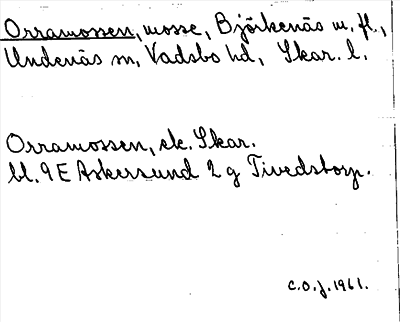 Orramossen, mosse, Björkenäs m. fl.,
Undenäs sn, Vadsbo hd, Skar. l.
Orramossen, ek. Skar.
bl. 9 E Askersund 2 g Tivedstorp.
C.O.J. 1961.